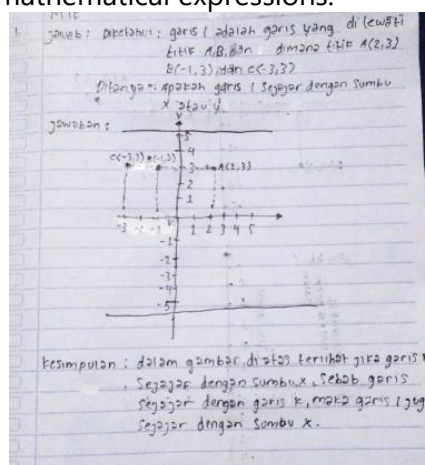 mathematical expressions.
1. Jawab : Diketahui : garis l adalah garis yang dilewati
titik A, B, dan dimana titik A(2,3)
B(-1, 3), dan C(-3,3)
Ditanya : Apakah garis l sejajar dengan sumbu
x atau y
Jawaban :
y
5
4
C(-3,3) (-1,3)
3 A(2,3)
2
1
-3 -2 -1 1 2 3 4 5
-1
-2
-3
-4
-5
Kesimpulan : dalam gambar di atas terlihat jika garis
sejajar dengan sumbu x, sebab garis
sejajar dengan garis k, maka garis l jug
sejajar dengan sumbu x.